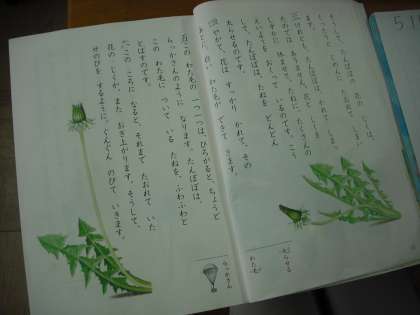 そうして、たんぽぽの 花の じくは、
ぐったりと じめんに たおれて しまい
ます。
三 けれども、たんぽぽは、かれて しまっ
たのでは ありません。花と じくを
しずかに 休ませて、たねに、たくさんの
えいようを おくって いるのです。こう
して、たんぽぽは、たねを どんどん
太らせるのです。
四 やがて、花は すっかり かれて、その
あとに、白い わた毛が できて きます。
太らせる
わた毛
五 この わた毛の 一つ一つは、ひろがると、ちょうど
らっかさんのように なります。たんぽぽは、
この わた毛に ついて いる たねを、ふわふわと
とばすのです。
六 この ころに なると、それまで たおれて いた
花の じくが、また おき上がります。そうして、
せのびを するように、ぐんぐん のびて いきます。
らっかさん